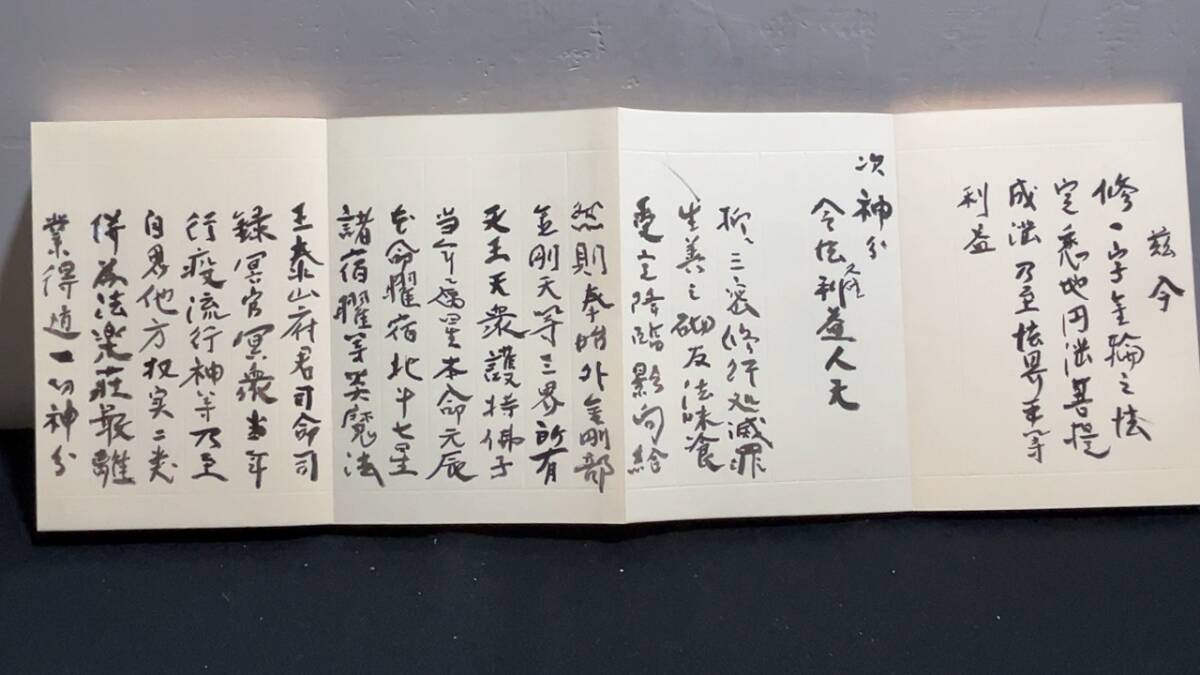 茲今
修一字金輪之法
定悉地円満菩提
成満乃至法界平等
利益
次神分
令法久住利益人天
抑三密修行処滅罪
生善之砌友法味飡
受定降臨影向給
然則奉始外金剛部
金剛天等三界所有
天王天衆護持佛子
当年属星本命元辰
本命曜宿北斗七星
諸宿曜等炎魔法
王泰山府君司命司
録冥官冥衆当年
行疫流行神等乃至
自界他方权实二类
併為法楽荘厳離
業得道一切神分